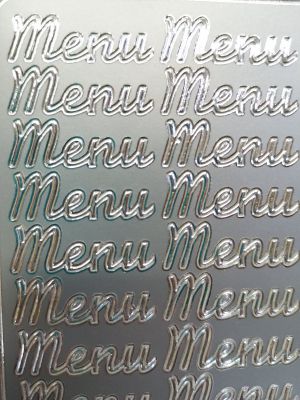 Menu Menu
Menu Menu
Menu Menu
Menu Menu
Menu Menu
Menu Menu
Menu Menu
Menu Menu